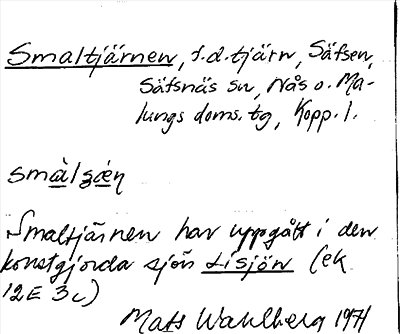 Smaltjärnen, f.d. tjärn, Säfsen,
Säfsnäs sn, Nås o. Ma-
lungs doms. tg, Kopp. l.
smàlʒæ̀ŋ
Smaltjärnen har uppgått i den
konstgjorda sjön Lisjön (ek
12E 3c)
Mats Wahlberg 1971